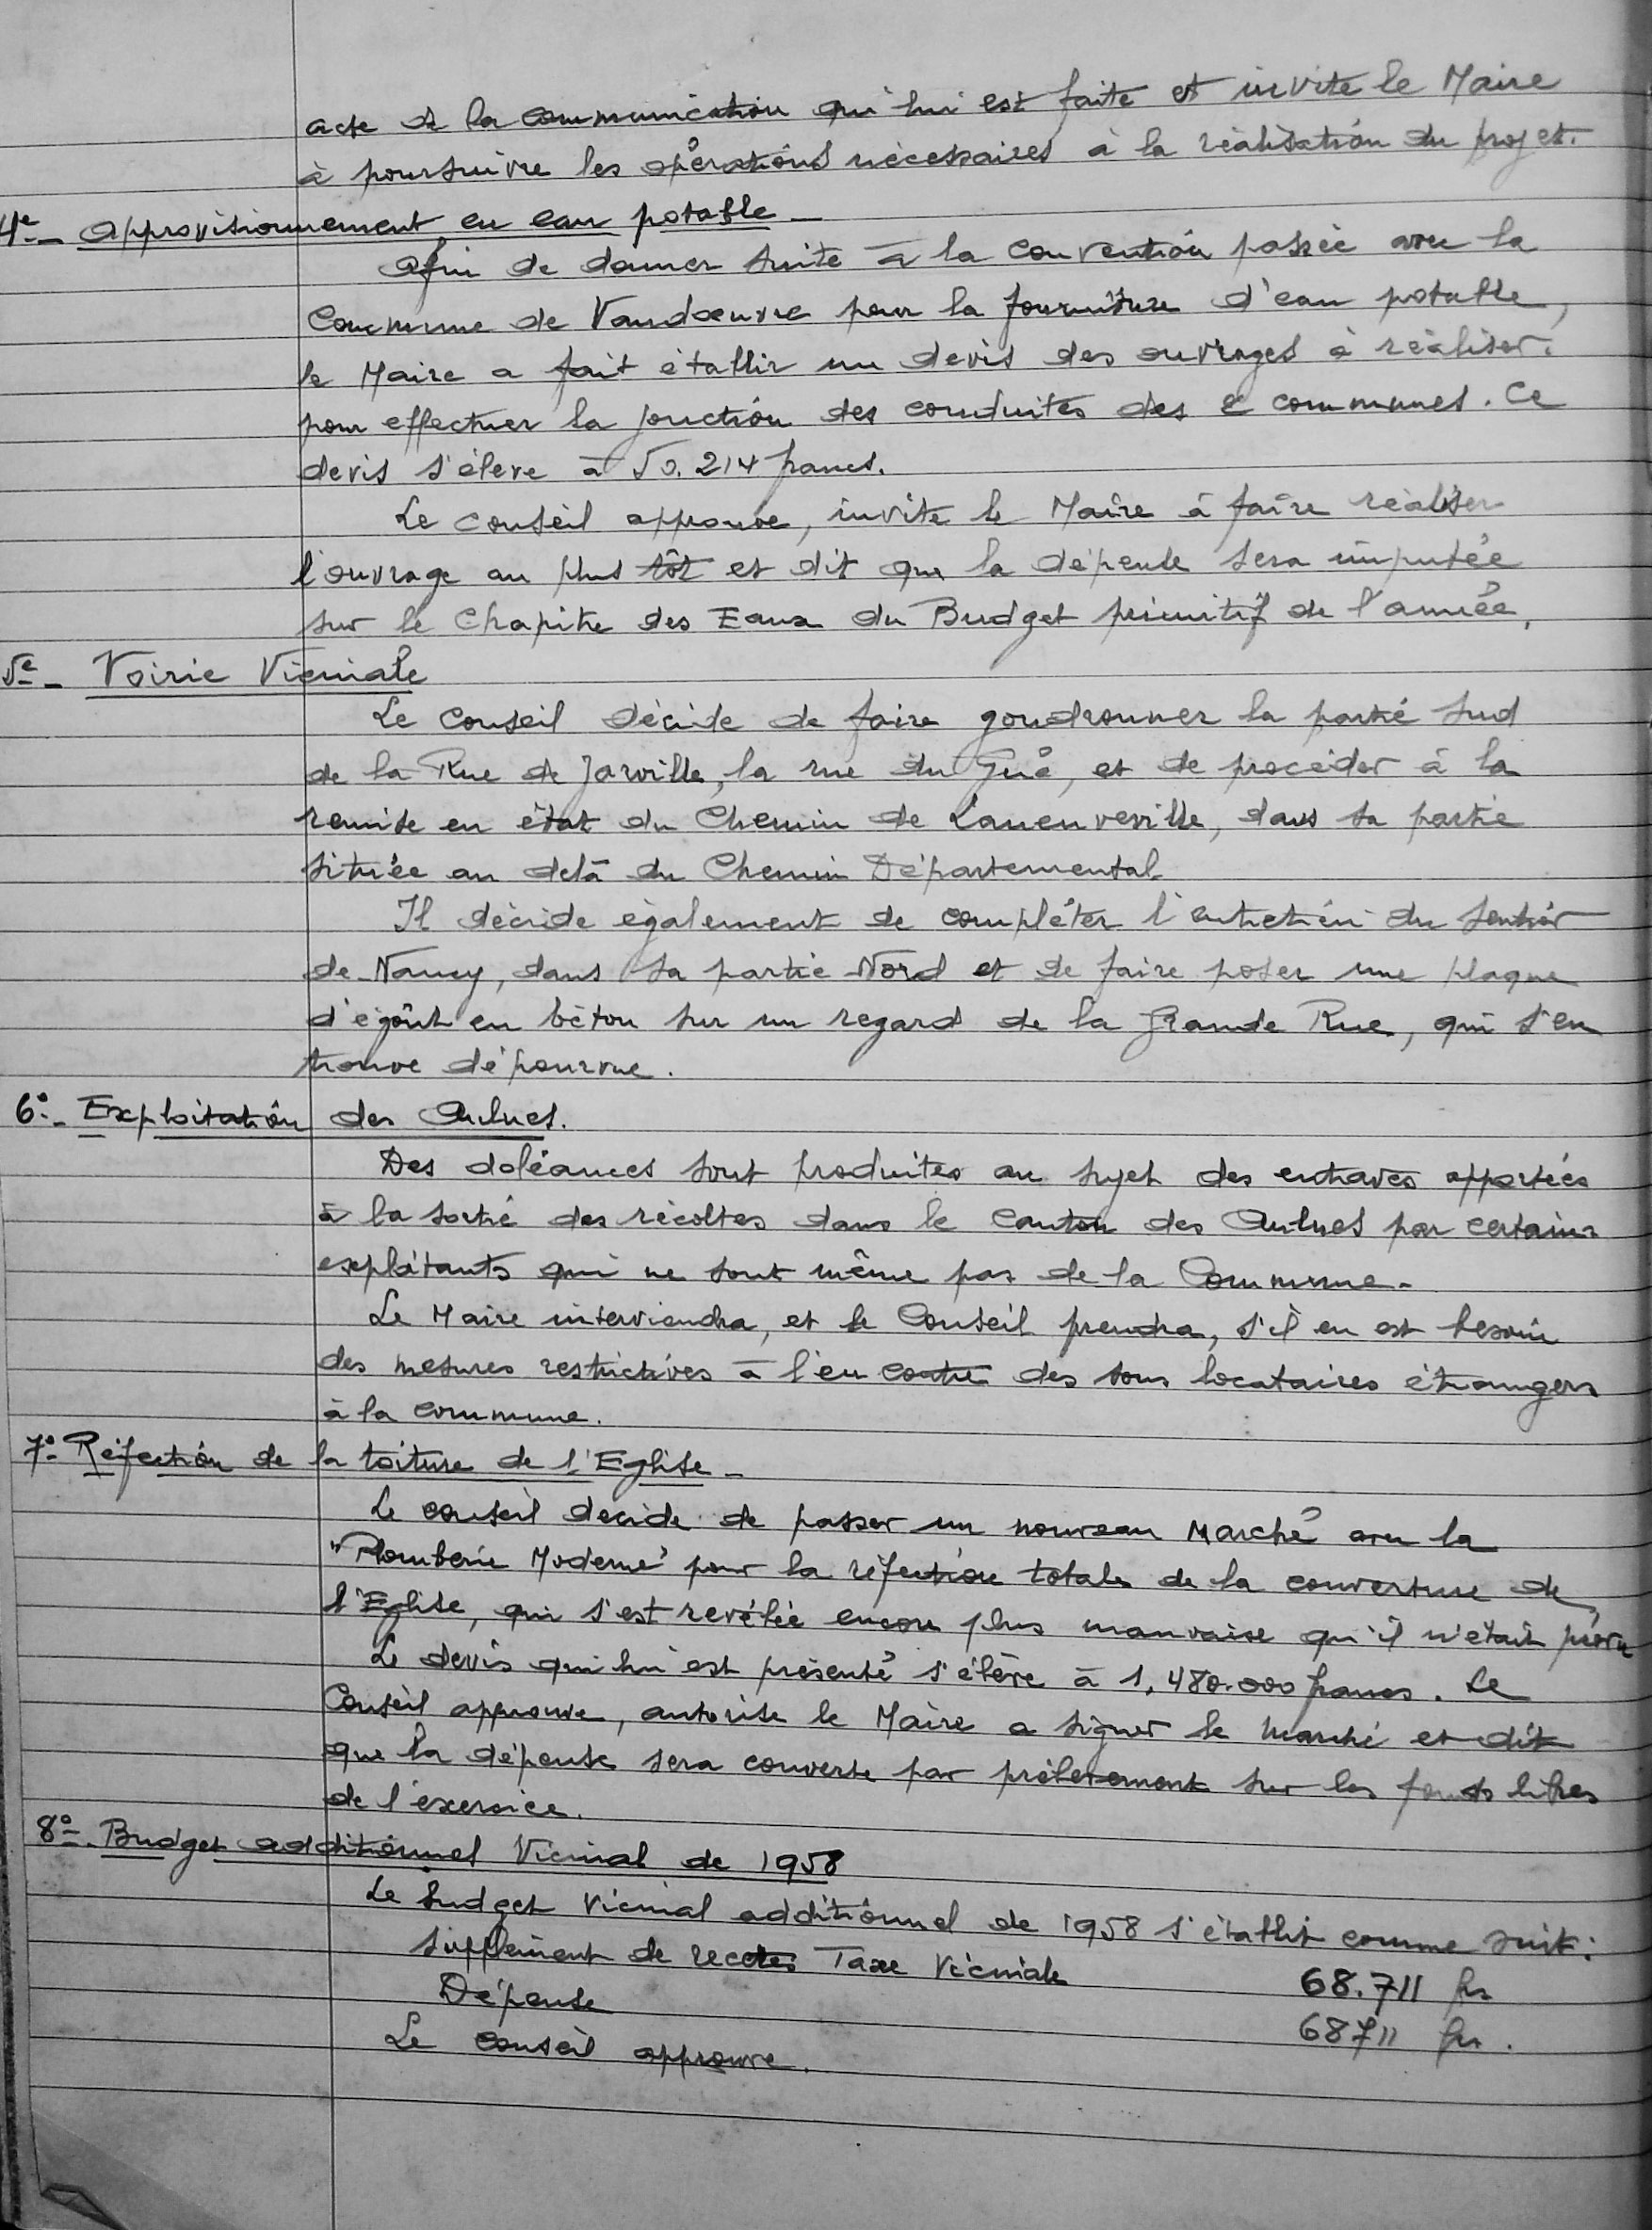 acte de la communication qui lui est faite et invite le Maire
à poursuivre les opérations nécessaires à la réalisation du projet.
4e - Approvisionnement en eau potable -
Afin de donner suite à la convention passée avec la
Commune de Vandœuvre pour la fourniture d'eau potable,
le Maire a fait établir un devis des ouvrages à réaliser
pour effectuer la jonction des conduites des 2 communes. Ce
devis s'élève à 50.214 francs.
Le Conseil approuve, invite le Maire à faire réaliser
l'ouvrage au plus tôt et dit que la dépense sera imputée
sur le Chapitre des Eaux du Budget primitif de l'année.
5e - Voirie Vicinale
Le Conseil décide de faire goudronner la partie Sud
de la Rue de Jarville, la rue du Gué, et de procéder à la
remise en état du Chemin de Laneuveville, dans sa partie
située au delà du Chemin Départemental
Il décide également de compléter l'entretien du sentier
de Nancy, dans sa partie Nord et de faire poser une plaque
d'égoût en béton sur un regard de la Grande Rue, qui s'en
trouve dépourvue.
6°- Exploitation des Aulnes.
Des doléances sont produites au sujet des entraves apportées
à la sortie des récoltes dans le canton des Aulnes par certains
exploitants qui ne sont même pas de la Commune.
Le Maire interviendra, et le Conseil prendra, s'il en est besoin
des mesures restrictives à l'encontre des sous locataires étrangers
à la commune.
7°- Réfection de la toiture de l'Eglise -
Le conseil décide de passer un nouveau Marché avec la
"Plomberie Moderne" pour la réfection totale de la couverture de
l'Eglise, qui s'est revélée encore plus mauvaise qu'il n'était prévu
Le devis qui lui est présenté s'élève à 1.480.000 francs. Le
Conseil approuve, autorise le Maire a signer le marché et dit
que la dépense sera couverte par prélèvement sur les fonds libres
de l'exercice.
8°- Budget additionnel Vicinal de 1958
Le budget vicinal additionnel de 1958 s'établit comme suit :
Supplément de recettes Taxe Vicinale 68.711 frs
Dépense 68711 frs.
Le conseil approuve.